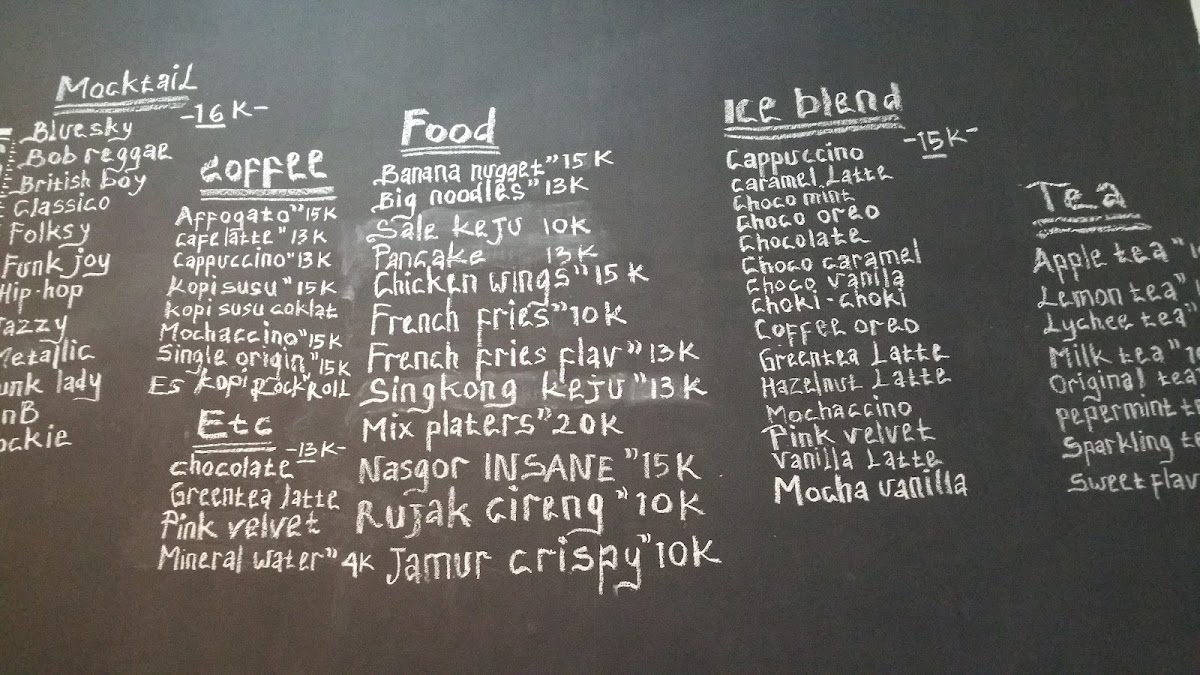 Mocktail
-16K-
Bluesky
Bob reggae
British boy
Classico
Folksy
Funk joy
Hip-hop
Jazzy
Metallic
lady
Coffee
Affogato" 15K
Cafe latte" 13K
Cappuccino" 13K
Kopi susu" 15K
Kopi susu coklat
Mochaccino" 15K
Single origin" 15K
Es kopi Rock" ROLL
Etc
-13K-
Chocolate
Greentea latte
Pink velvet
Mineral water" 4K
Food
Banana nugget" 15K
Big noodles" 13K
Sale keju 10K
Pancake 13K
Chicken wings" 15K
French fries" 10K
French fries flav" 13K
Singkong keju" 13K
Mix platers" 20K
Nasgor INSANE" 15K
Rujak cireng" 10K
Jamur crispy" 10K
Ice blend
-15K-
Cappuccino
Caramel Latte
Choco mint
Choco oreo
Chocolate
Choco caramel
Choco vanilla
Choki-choki
Coffee oreo
Greentea Latte
Hazelnut Latte
Mochaccino
Pink velvet
Vanilla Latte
Mocha vanilla
Tea
Apple tea"
Lemon tea"
Lychee tea"
Milk tea"
Original tea
Pepermint
Sparkling
Sweet flav